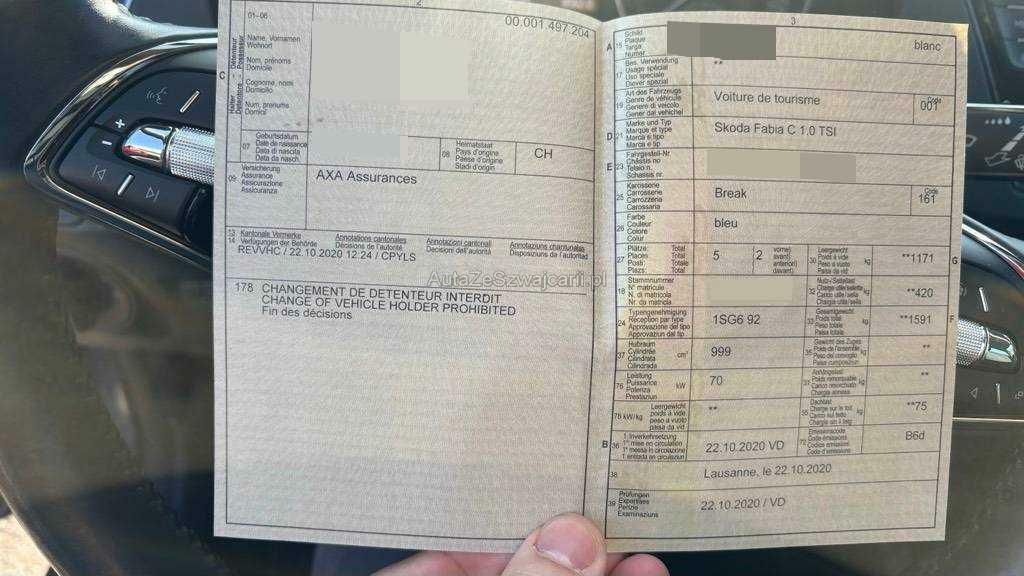 2
00.001 497.204
01-06
Name, Vornamen
Wohnort
Nom, prénoms
Domicile
Cognome, nomi
Domicilio
Num, prenums
Domicil
C
Halter - Détenteur
Detentore - Possessur
07
Geburtsdatum
Date de naissance
Data di nascita
Data da nasch.
08
Heimatstaat
Pays d'origine
Paese d'origine
Stadi d'origin
CH
09
Versicherung
Assurance
Assicurazione
Assicuranza
AXA Assurances
13
14
Kantonale Vermerke
Verfügungen der Behörde
Annotations cantonales
Décisions de l'autorité
Annotazioni cantonali
Decisioni dell'autorità
Annotaziuns chantunalas
Disposiziuns da l'autoritad
REVVHC / 22.10.2020 12:24 / CPYLS
178 CHANGEMENT DE DETENTEUR INTERDIT
CHANGE OF VEHICLE HOLDER PROHIBITED
Fin des décisions
AutaZeSzwajcarii.pl
3
A 15
Schild
Plaque
Targa
Numer
blanc
17
Bes. Verwendung
Usage spécial
Uso speciale
Diever spezial
**
19
Art des Fahrzeugs
Genre de véhicule
Genere di veicolo
Gener dal vehichel
Voiture de tourisme
Code
001
D 21
Marke und Typ
Marque et type
Marca e tipo
Marca e tip
Skoda Fabia C 1.0 TSI
E 23
Fahrgestell-Nr
Châssis no
Telaio n.
Schassis nr.
25
Karosserie
Carrosserie
Carrozzeria
Carossaria
Break
Code
161
26
Farbe
Couleur
Colore
Colur
bleu
27
Plätze: Total
Places: Total
Posti: Totale
Plazs: Total
5
2
vorne)
avant)
anteriori)
davant)
30
Leergewicht
Poids à vide
Peso a vuoto
Paisa da vid
kg
**1171
G
18
Stammnummer
N° matricule
N. di matricola
Nr. da matricla
32
Nutz-/Sattellast
Charge utile/sellette
Carico utile/sella
Chargia utila/sella
kg
**420
24
Typengenehmigung
Réception par type
Approvazione del tipo
Approvaziun dal tip
1SG6 92
33
Gesamtgewicht
Poids total
Peso totale
Paisa totala
kg
**1591
F
37
Hubraum
Cylindrée
Cilindrata
Cilindrada
cm³
999
35
Gewicht des Zuges
Poids de l'ensemble
Peso del convoglio
Paisa cumposiziun
kg
**
76
Leistung
Puissance
Potenza
Prestaziun
kW
70
31
Anhängelast
Poids remorquable
Carico rimorchiato
Chargia annexa
kg
**
78 kW/kg
Leergewicht
poids à vide
peso a vuoto
paisa da vid
**
55
Dachlast
Charge sur le toit
Carico sul tetto
Chargia sin il tetg
kg
**75
B 36
1. Inverkehrsetzung
1re mise en circulation
1a messa in circolazione
1. entrada en circulaziun
22.10.2020 VD
72
Emissionscode
Code émissions
Codice emissioni
Code d'emissiuns
B6d
38
Lausanne, le 22.10.2020
39
Prüfungen
Expertises
Perizie
Examinaziuns
22.10.2020 / VD